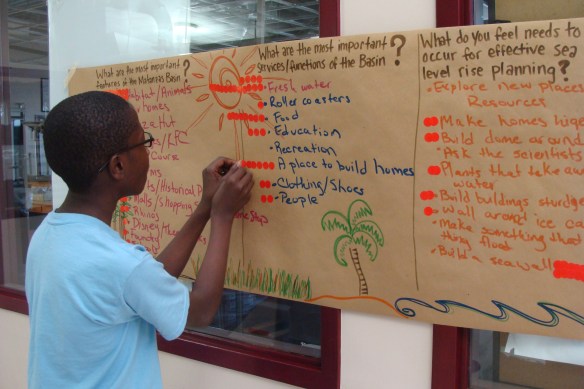 What are the most important
features of the Matanzas Basin?
Habitat/Animals
homes
Hut
Course
Malls/shopping
Rhinos
Disney/
What are the most important
services/functions of the Basin?
Fresh water
• Roller coasters
Food
Education
• Recreation
A place to build homes
• Clothing/Shoes
• People
What do you feel needs to
occur for effective sea
level rise planning?
• Explore new places
Resources
Make homes huge
Build dome around
• Ask the scientists
Plants that take away
water
Build buildings sturdge
Wall around ice ca
• Make something that
thing flood
• Build a seawall